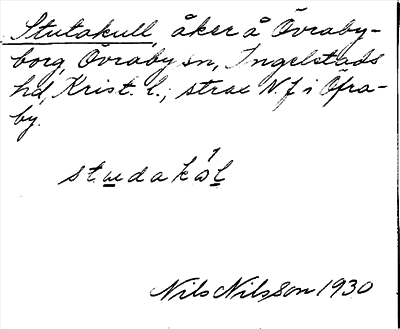 Stutakull, åker å Övraby-
borg, Övraby sn, Ingelstads
hd, Krist. l.; strax N. f. i Öfra-
by.
Nils Nilsson 1930